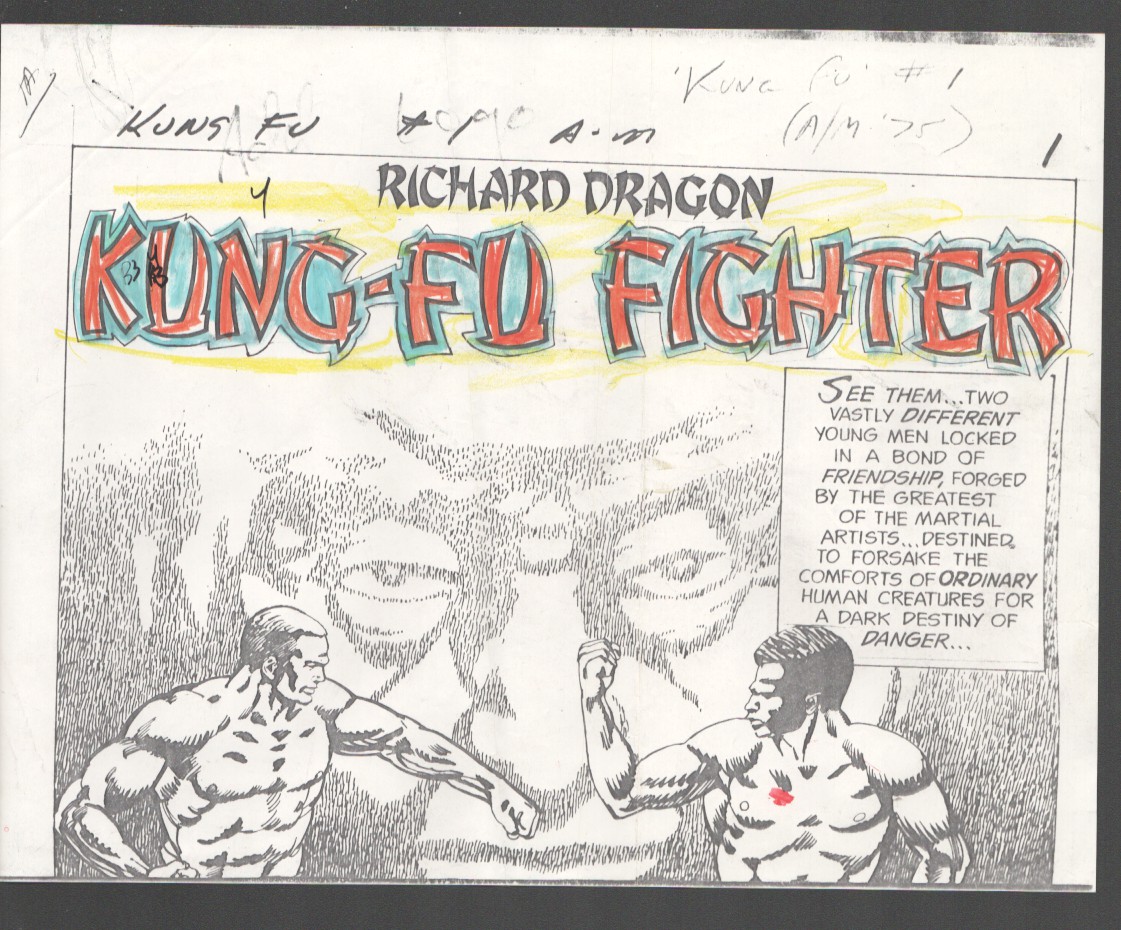 'KUNG FU' #1
KUNG FU #1 A-M
(A/M '75)
1
RICHARD DRAGON
4
KUNG-FU FIGHTER
SEE THEM...TWO
VASTLY DIFFERENT
YOUNG MEN LOCKED
IN A BOND OF
FRIENDSHIP, FORGED
BY THE GREATEST
OF THE MARTIAL
ARTISTS...DESTINED
TO FORSAKE THE
COMFORTS OF ORDINARY
HUMAN CREATURES FOR
A DARK DESTINY OF
DANGER...